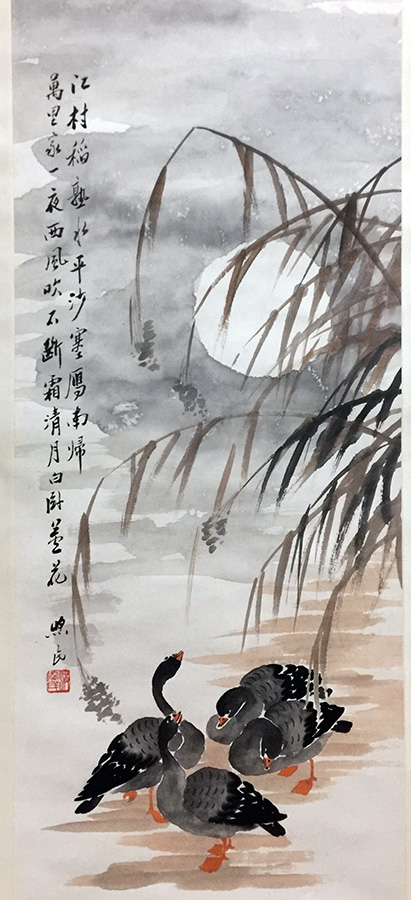 江村稻熟水平沙塞鴈南歸
萬里家一夜西風吹不斷霜清月白卧蘆花
民